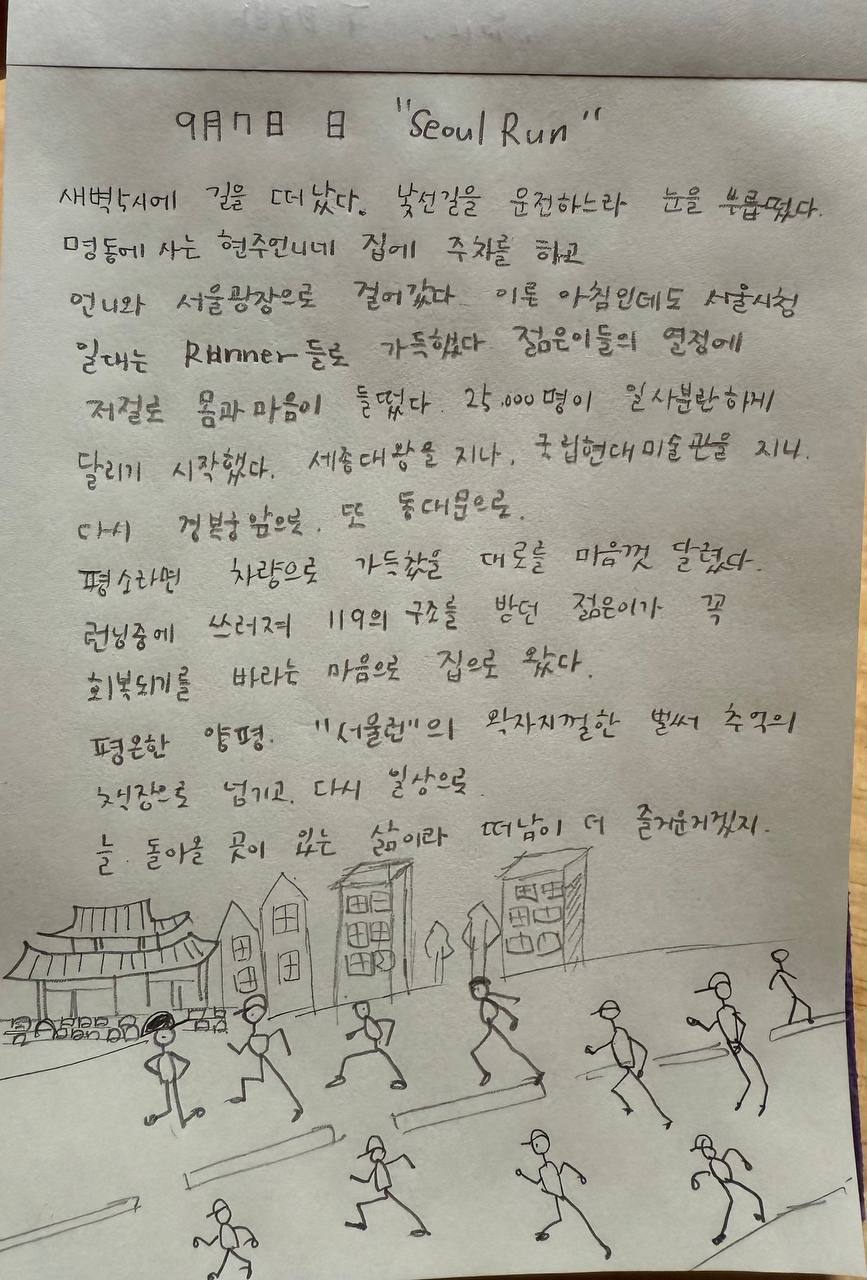 9月7日 日 "Seoul Run"
새벽5시에 길을 떠났다. 낯선길을 운전하느라 눈을 부릅떴다.
명동에 사는 현주언니네 집에 주차를 하고
언니와 서울광장으로 걸어갔다. 이른 아침인데도 서울시청
일대는 Runner들로 가득했다. 젊은이들의 열정에
저절로 몸과 마음이 들떴다. 25,000명이 일사분란하게
달리기 시작했다. 세종대왕을 지나, 국립현대미술관을 지나.
다시 경복궁앞으로. 또 동대문으로.
평소라면 차량으로 가득찼을 대로를 마음껏 달렸다.
런닝중에 쓰러져 119의 구조를 받던 젊은이가 꼭
회복되기를 바라는 마음으로 집으로 왔다.
평온한 양평. "서울런"의 왁자지껄한 벌써 추억의
책장으로 넘기고, 다시 일상으로.
늘 돌아올 곳이 있는 삶이라 떠남이 더 즐거운거겠지.